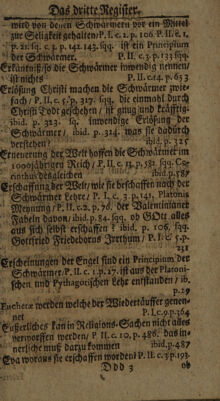 Das dritte Register.
wird von denen Schwärmern vor ein Mittel
zur Seligkeit gehalten/P. I. c. 2. p. 106. P. II. c. 1.
p. 21. sq. c. 3. p. 142. 143. sqq. ist ein Principium
der Schwärmer. P. II. c. 5. p. 133 sqq.
Erkäntnüß/ so die Schwärmer inwendig nennen/
ist nichts P. II. c. 14. p. 653
Erlösung Christi machen die Schwärmer zwie-
fach/ P. II. c. 5. p. 317. sqq. die einmahl durch
Christi Todt geschehn/ ist gnug und kräfftig/
ibid. p. 323. sq. inwendige Erlösung der
Schwärmer/ ibid. p. 324. was sie dadurch
verstehen? ibid. p. 325
Erneuerung der Welt hoffen die Schwärmer im
1000jährigen Reich/ P. II. c. 13. p. 581. sqq. Co-
rinthus desgleichen ibid. p. 587
Erschaffung der Welt/ wie sie beschaffen nach der
Schwärmer Lehre/ P. I. c. 3. p. 141. Platonis
Meynung/ P. II. c. 2. p. 76. der Valentinianer
Fabeln davon/ ibid. p. 84. sqq. ob GOtt alles
aus sich selbst erschaffen? ibid. p. 106. sqq.
Gottfried Friedeborns Irrthum/ P. I. c. 5. p.
221
Erscheinungen der Engel sind ein Principium der
Schwärmer/ P. II. c. 1. p. 27. ist aus der Platoni-
schen und Pythagorischen Lehre entstanden/ ib.
p. 29
Eucheræ werden welche der Wiedertäuffer genen-
net P. I. c. 9. p. 364
Eußerliches kan in Religions-Sachen nicht alles
verworffen werden/ P. II. c. 10. p. 486. das in-
nerliche muß darzu kommen ibid. p. 487
Eva woraus sie erschaffen worden/ P. II. c. 3. p. 193.
Ddd 3 ob